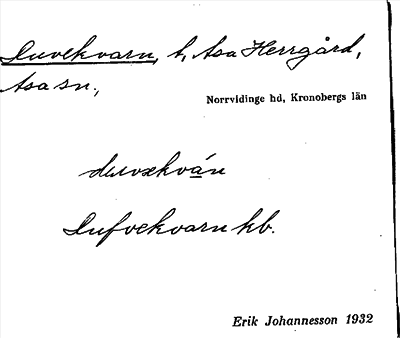 Duvekvarn, t, Asa Herrgård,
Asa sn.,
Norrvidinge hd, Kronobergs län
duvəkván
Dufvekvarn kb.
Erik Johannesson 1932